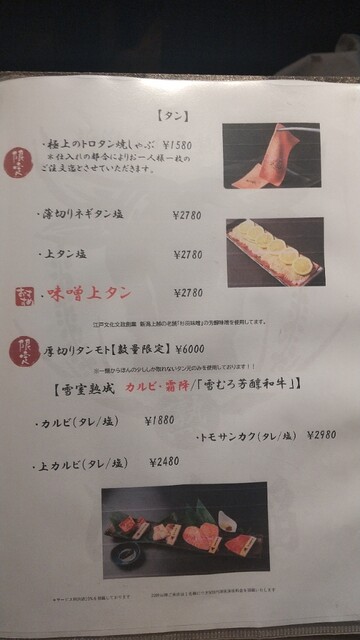 【タン】
・極上のトロタン焼しゃぶ ¥1580
※仕入れの都合によりお一人様一枚の
ご注文迄とさせていただきます。
・薄切りネギタン塩 ¥2780
・上タン塩 ¥2780
・味噌上タン ¥2780
江戸文化文政創業 新潟上越の老舗「杉田味噌」の芳醇味噌を使用してます。
厚切りタンモト【数量限定】¥6000
※一頭からほんの少ししか取れないタン元のみを使用しております!!
【雪室熟成 カルビ・霜降/「雪むろ芳醇和牛」】
・カルビ(タレ/塩) ¥1880
・トモサンカク(タレ/塩) ¥2980
・上カルビ(タレ/塩) ¥2480